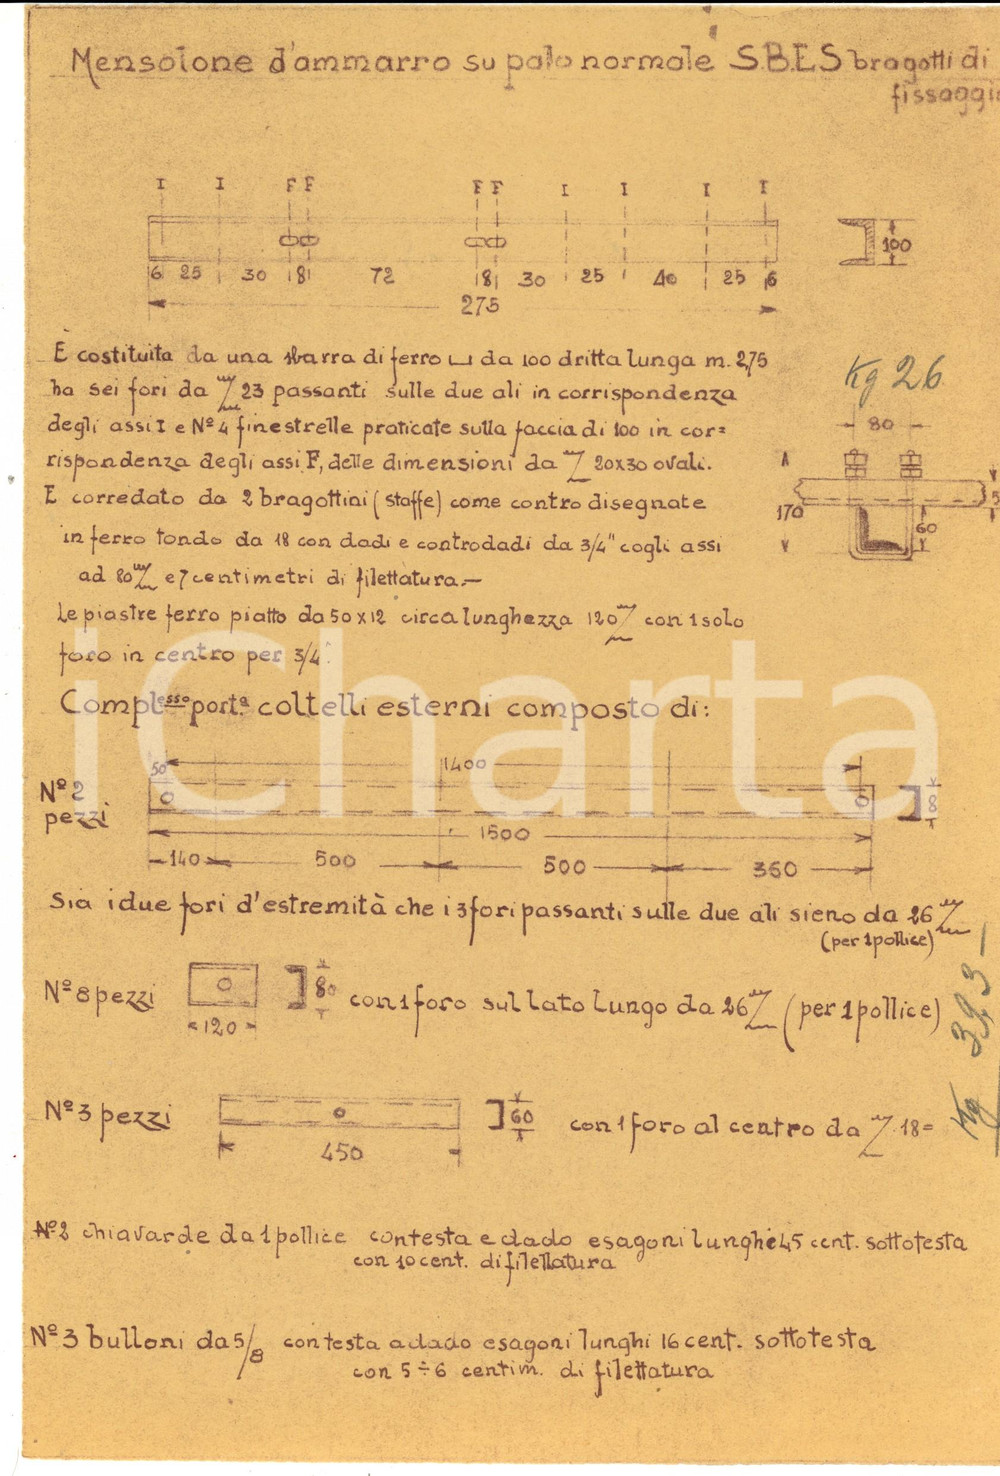 Mensolone d'ammarro su palo normale S.B.E.S bragotti di
fissaggio
I I F F F F I I I I
6 25 30 8 72 8 30 25 40 25 6
275
100
È costituita da una sbarra di ferro ⊔ da 100 dritta lunga m. 2,75
ha sei fori da m/m 23 passanti sulle due ali in corrispondenza
degli assi I e Nº 4 finestrelle praticate sulla faccia di 100 in cor=
rispondenza degli assi F, delle dimensioni da m/m 20x30 ovali.
E corredato da 2 bragottini (staffe) come contro disegnate
in ferro tondo da 18 con dadi e controdadi da 3/4" cogli assi
ad 80 m/m e 7 centimetri di filettatura.—
Le piastre ferro piatto da 50x12 circa lunghezza 120 m/m con 1 solo
foro in centro per 3/4"
Kg 26
80
170
60
5
Complesso port.a coltelli esterni composto di:
Nº 2
pezzi
50 1400
1500
140 500 500 360
8
Sia i due fori d'estremità che i 3 fori passanti sulle due ali sieno da 26 m/m
(per 1 pollice)
Nº 8 pezzi
120
80
con 1 foro sul lato lungo da 26 m/m (per 1 pollice)
Kg 393-
Nº 3 pezzi
450
60
con 1 foro al centro da m/m 18=
Nº 2 chiavarde da 1 pollice con testa e dado esagoni lunghe 45 cent. sottotesta
con 10 cent. di filettatura
Nº 3 bulloni da 5/8 con testa a dado esagoni lunghi 16 cent. sottotesta
con 5÷6 centim. di filettatura
iCharta